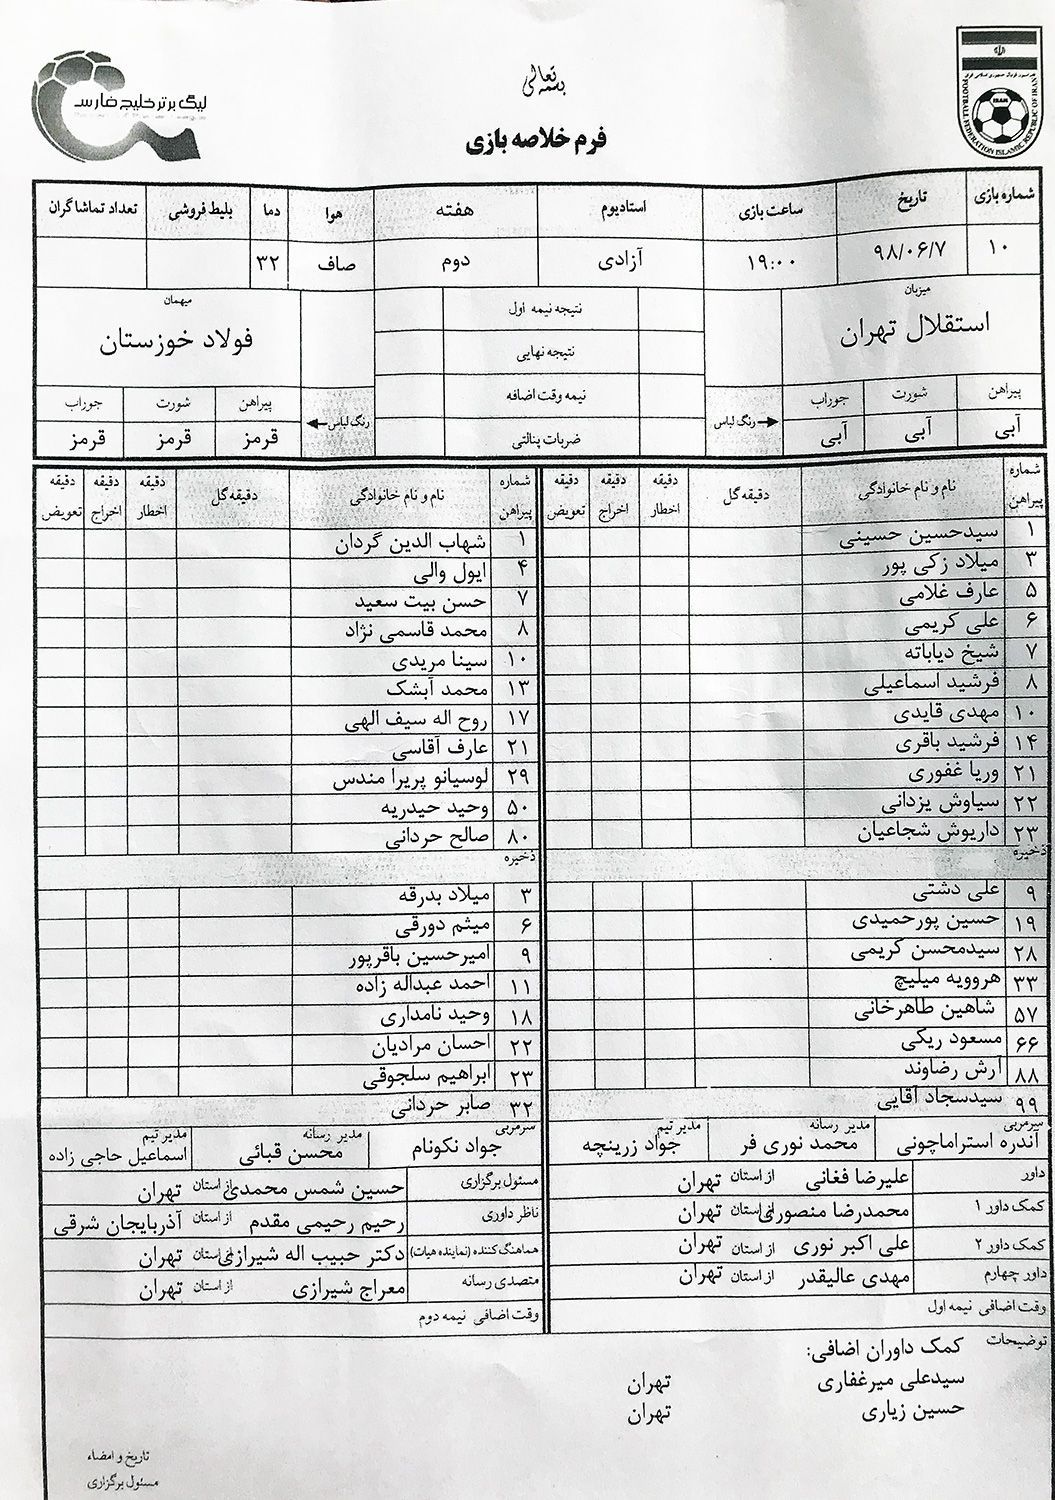 بسمه تعالی
لیگ برتر خلیج فارس
FOOTBALL FEDERATION ISLAMIC REPUBLIC OF IRAN
IRAN
فرم خلاصه بازی
شماره بازی تاریخ ساعت بازی استادیوم هفته هوا دما بلیط فروشی تعداد تماشاگران
۱۰ ۹۸/۰۶/۷ ۱۹:۰۰ آزادی دوم صاف ۳۲
میزبان
استقلال تهران
پیراهن شورت جوراب
آبی آبی آبی
رنگ لباس
نتیجه نیمه اول
نتیجه نهایی
نیمه وقت اضافه
ضربات پنالتی
میهمان
فولاد خوزستان
رنگ لباس
پیراهن شورت جوراب
قرمز قرمز قرمز
شماره پیراهن نام و نام خانوادگی دقیقه گل دقیقه اخطار دقیقه اخراج دقیقه تعویض
۱ سیدحسین حسینی
۳ میلاد زکی پور
۵ عارف غلامی
۶ علی کریمی
۷ شیخ دیاباته
۸ فرشید اسماعیلی
۱۰ مهدی قایدی
۱۴ فرشید باقری
۲۱ وریا غفوری
۲۲ سیاوش یزدانی
۲۳ داریوش شجاعیان
ذخیره
۹ علی دشتی
۱۹ حسین پورحمیدی
۲۸ سیدمحسن کریمی
۳۳ هروویه میلیچ
۵۷ شاهین طاهرخانی
۶۶ مسعود ریکی
۸۸ آرش رضاوند
۹۹ سیدسجاد آقایی
سرمربی آندره استراماچونی مدیر رسانه محمد نوری فر مدیر تیم جواد زرینچه
شماره پیراهن نام و نام خانوادگی دقیقه گل دقیقه اخطار دقیقه اخراج دقیقه تعویض
۱ شهاب الدین گردان
۴ ایول والی
۷ حسن بیت سعید
۸ محمد قاسمی نژاد
۱۰ سینا مریدی
۱۳ محمد آبشک
۱۷ روح اله سیف الهی
۲۱ عارف آقاسی
۲۹ لوسیانو پریرا مندس
۵۰ وحید حیدریه
۸۰ صالح حردانی
ذخیره
۳ میلاد بدرقه
۶ میثم دورقی
۹ امیرحسین باقرپور
۱۱ احمد عبداله زاده
۱۸ وحید نامداری
۲۲ احسان مرادیان
۲۳ ابراهیم سلجوقی
۳۲ صابر حردانی
سرمربی جواد نکونام مدیر رسانه محسن قبائی مدیر تیم اسماعیل حاجی زاده
داور علیرضا فغانی از استان تهران
کمک داور ۱ محمدرضا منصوری از استان تهران
کمک داور ۲ علی اکبر نوری از استان تهران
داور چهارم مهدی عالیقدر از استان تهران
وقت اضافی نیمه اول
مسئول برگزاری حسین شمس محمدی از استان تهران
ناظر داوری رحیم رحیمی مقدم از استان آذربایجان شرقی
هماهنگ کننده (نماینده هیات) دکتر حبیب اله شیرازی از استان تهران
متصدی رسانه معراج شیرازی از استان تهران
وقت اضافی نیمه دوم
توضیحات
کمک داوران اضافی:
سیدعلی میرغفاری تهران
حسین زیاری تهران
تاریخ و امضاء
مسئول برگزاری